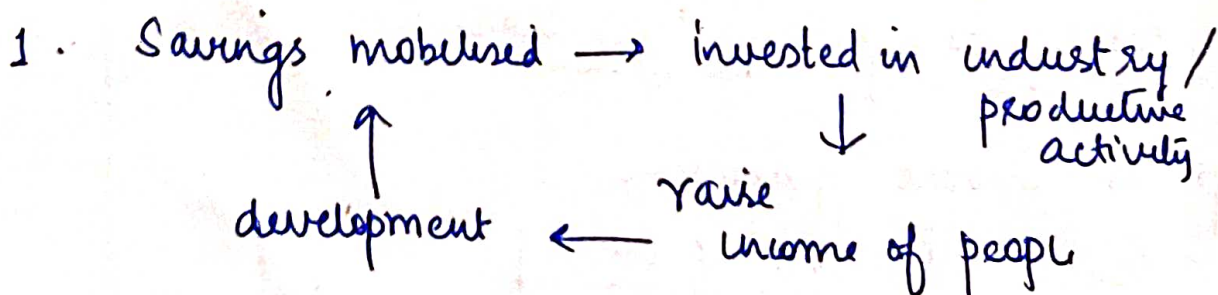 1. Savings mobilised → invested in industry /
productive
activity
↓
raise
income of people
←
development
↑